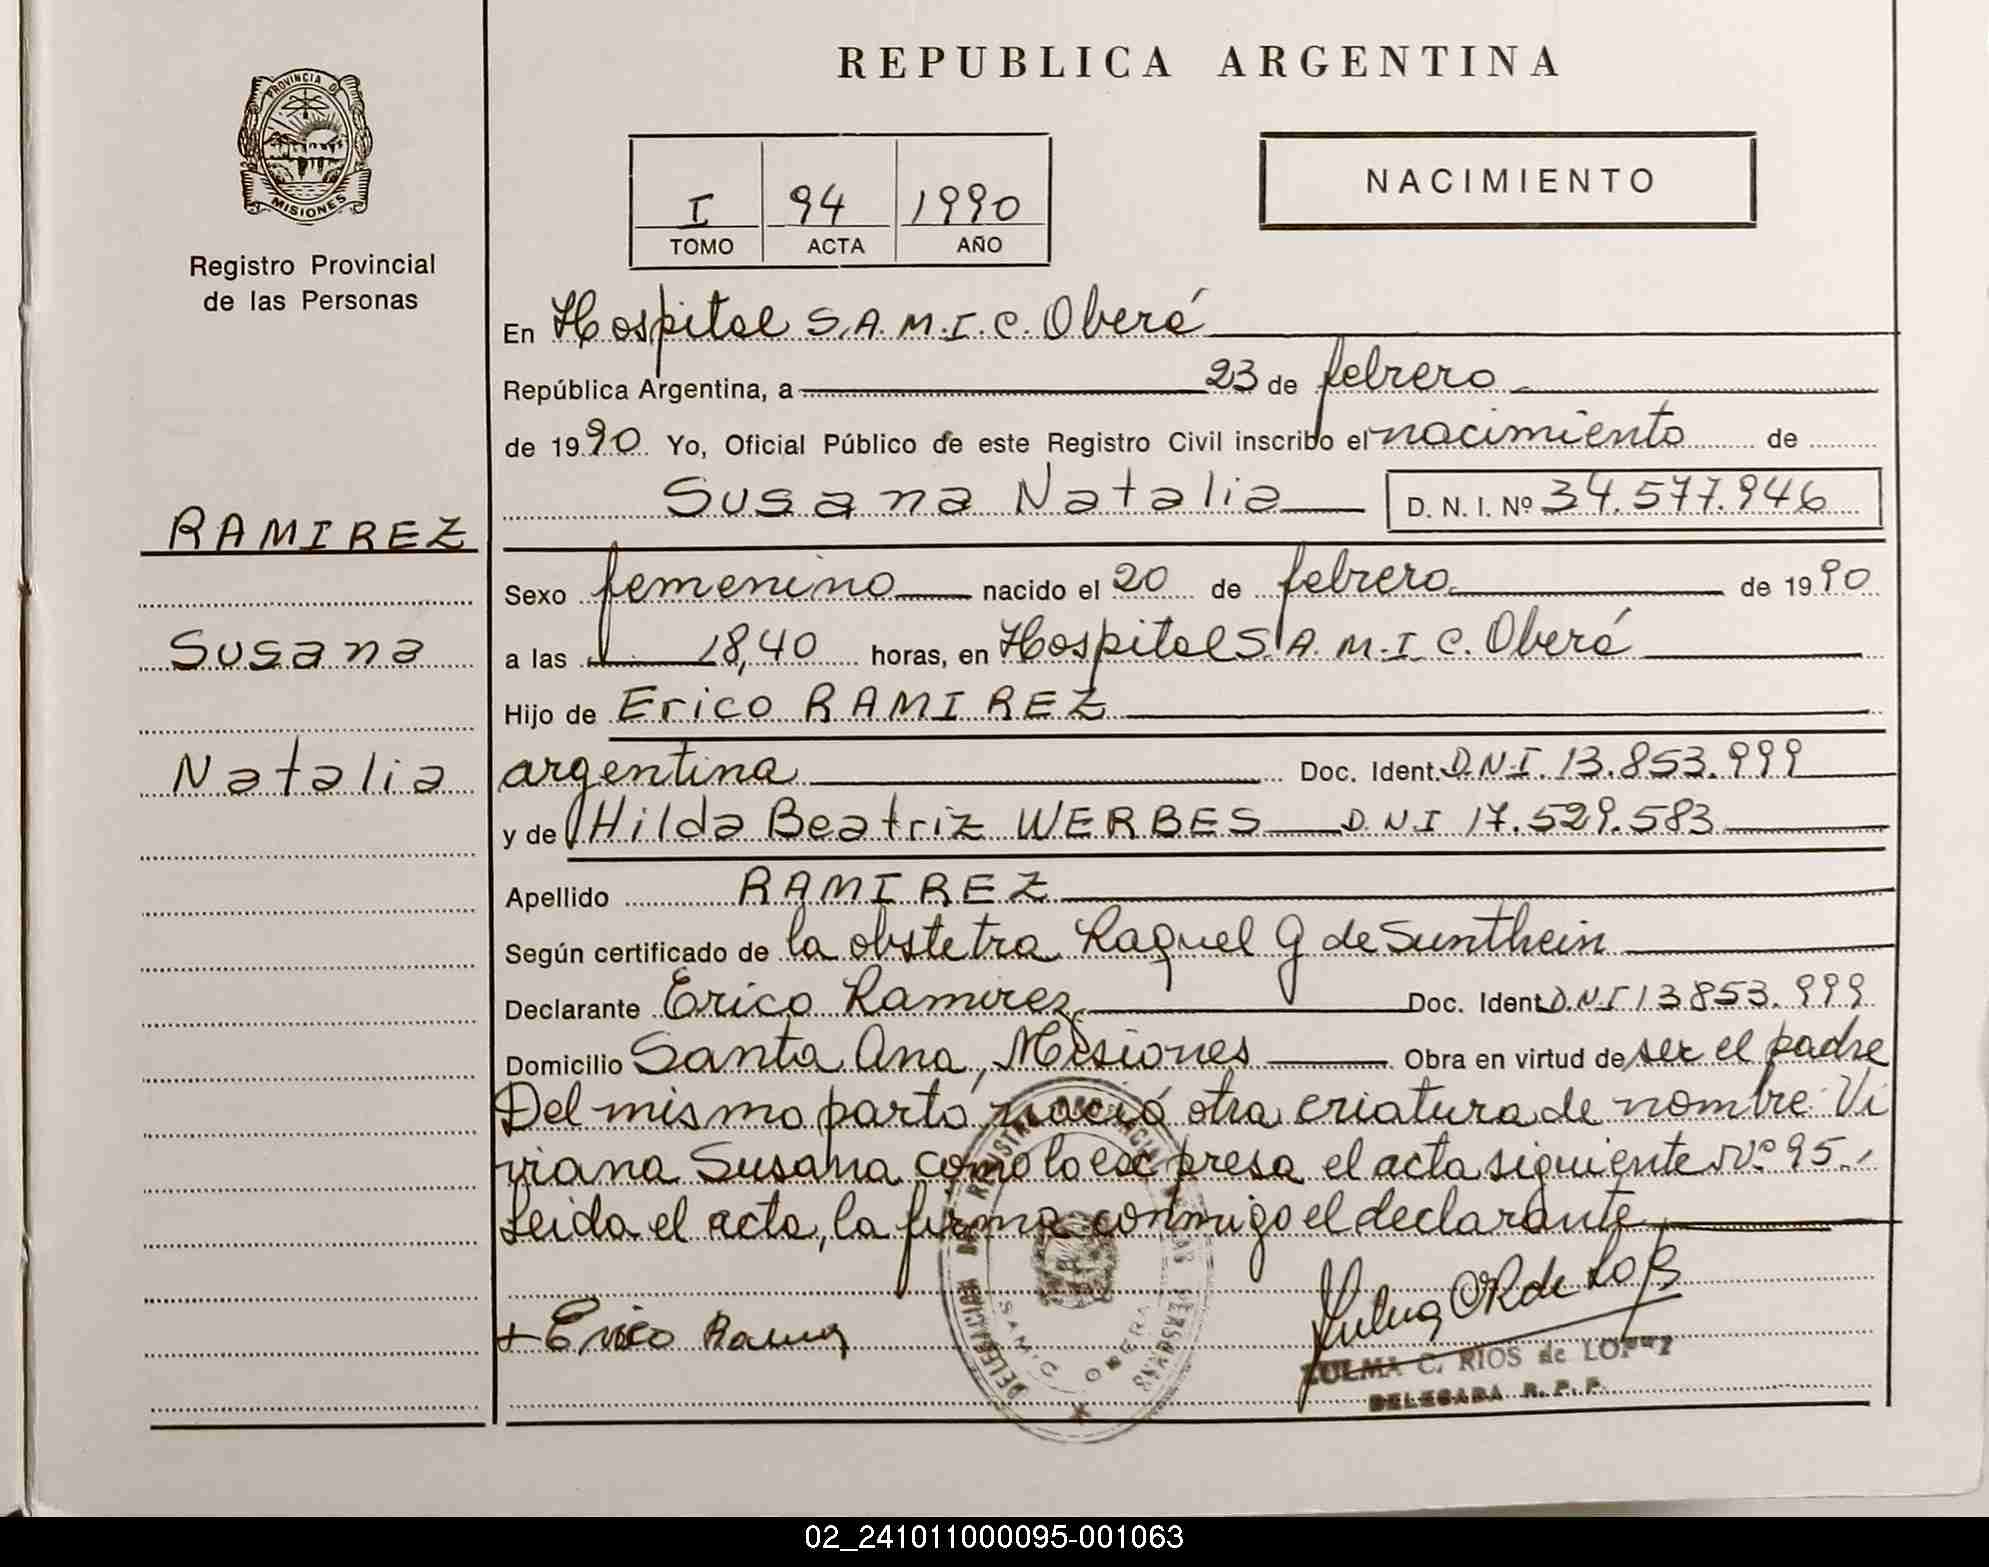 REPUBLICA ARGENTINA
PROVINCIA D
MISIONES
Registro Provincial
de las Personas
RAMIREZ
Susana
Natalia
I 94 1990
TOMO ACTA AÑO
NACIMIENTO
En Hospital S.A.M.I.C. Oberá
República Argentina, a 23 de febrero
de 1990 Yo, Oficial Público de este Registro Civil inscribo el nacimiento de
Susana Natalia D. N. I. Nº 34.577.946
Sexo femenino nacido el 20 de febrero de 1990
a las 18,40 horas, en Hospital S.A.M.I.C. Oberá
Hijo de Erico RAMIREZ
argentina Doc. Ident. D.N.I. 13.853.999
y de Hilda Beatriz WERBES D.N.I 17.529.583
Apellido RAMIREZ
Según certificado de la obstetra Raquel G de Sunthein
Declarante Erico Ramirez Doc. Ident D.N.I 13853.999
Domicilio Santa Ana, Misiones Obra en virtud de ser el padre
Del mismo parto nació otra criatura de nombre Vi
viana Susana como lo expresa el acta siguiente Nº 95.
Leida el acta, la firma conmigo el declarante
+ Erico Ramirez
ZULMA C. RIOS de LOPEZ
DELEGADA R. P. P.
SAMIC OBERA
02_241011000095-001063